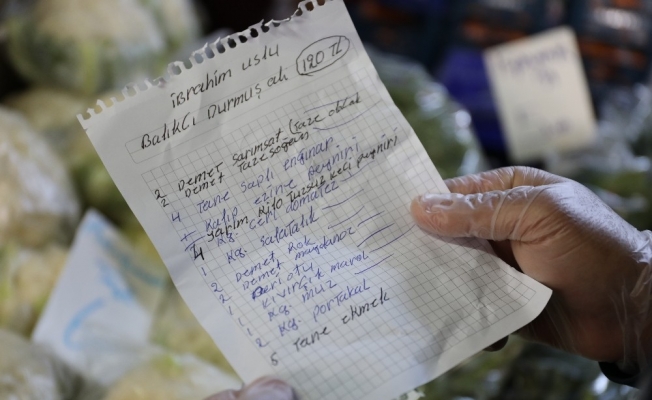 İbrahim usta
Balıkçı Durmuş ali 120 TL
2 Demet sarımsak (Taze olacak
2 Demet Taze soğan
4 Tane saplı enginar
1 Kalıp ezine peyniri
keçi peyniri
1 Kg çeri domates
1 Kg salatalık
2 Demet Rok
2 Demet maydanoz
1 kıvırcık marul
1 Kg muz
2 Kg portakal
5 Tane ekmek